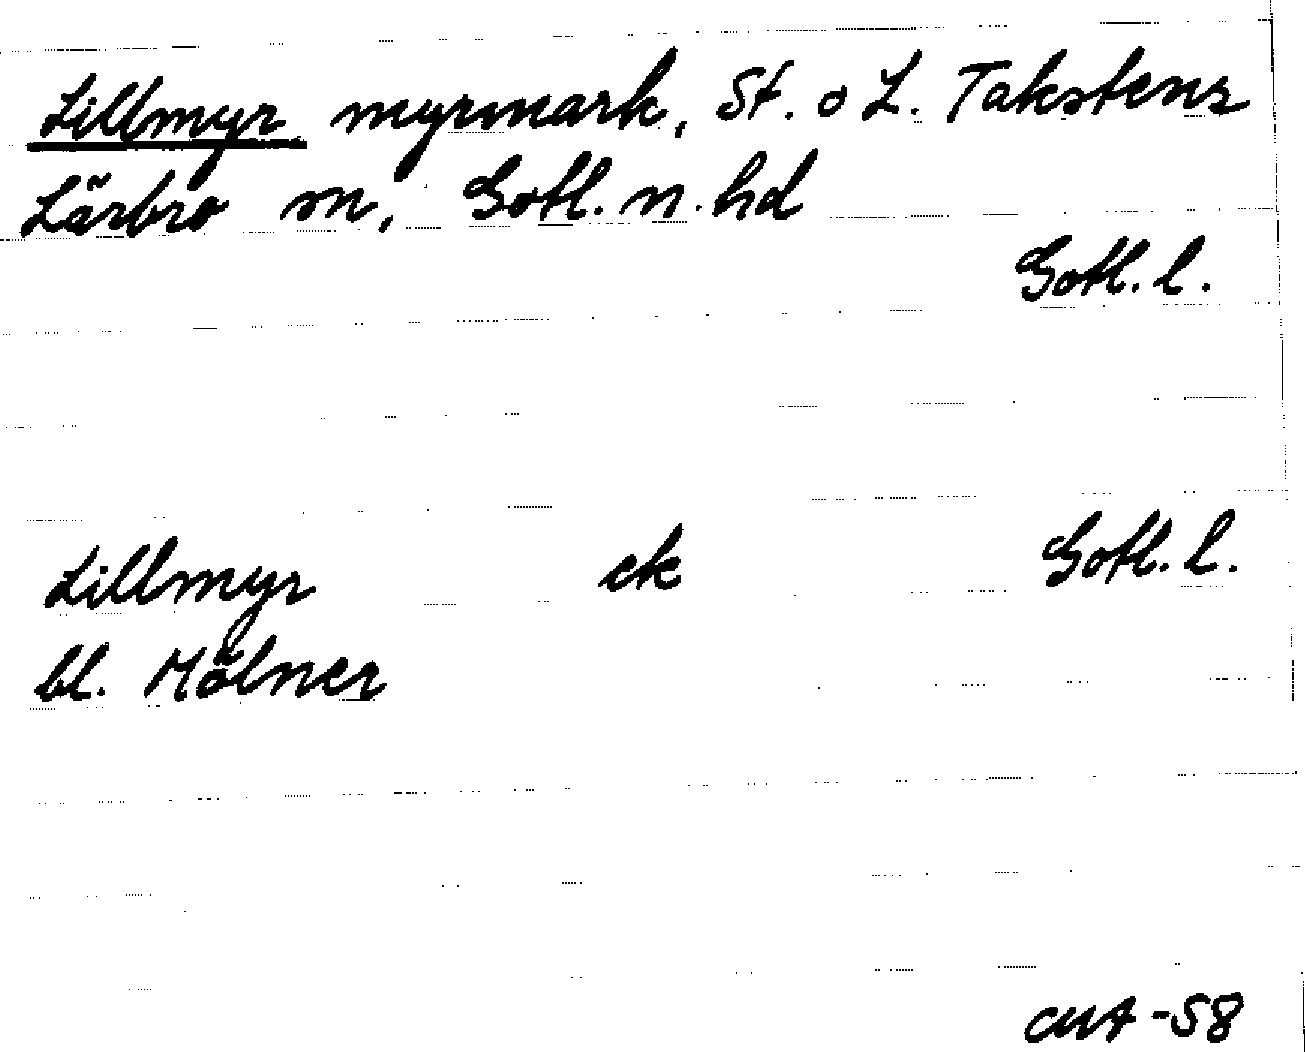 Lillmyr myrmark, St. o L. Takstens
Lärbro sn, Gotl. n. hd
Gotl. l.
Lillmyr ek Gotl. l.
bl. Mölner
-58